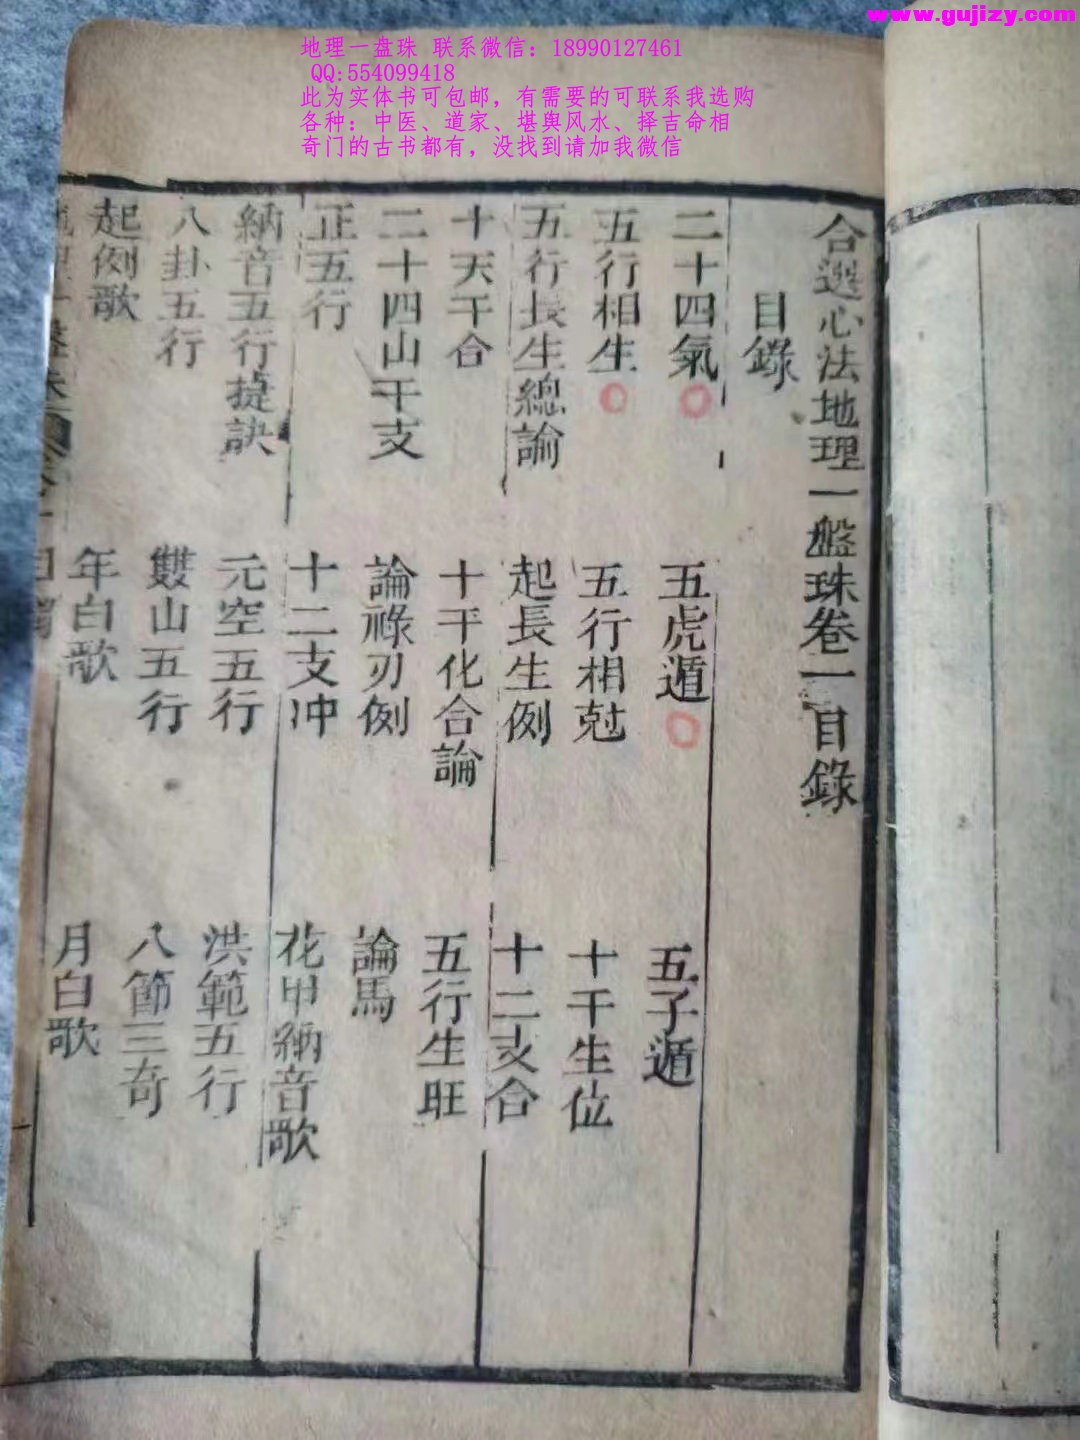 www.gujizy.com
地理一盘珠 联系微信：18990127461
QQ:554099418
此为实体书可包邮，有需要的可联系我选购
各种：中医、道家、堪舆风水、择吉命相
奇门的古书都有，没找到请加我微信
合選心法地理一盤珠卷一目錄
目錄
二十四氣 五虎遁 五子遁
五行相生 五行相尅 十干生位
五行長生總論 起長生例 十二支合
十天干合 十干化合論 五行生旺
二十四山干支 論祿刃例 論馬
正五行 十二支冲 花甲納音歌
納音五行捷訣 元空五行 洪範五行
八卦五行 雙山五行 八節三奇
起例歌 年白歌 月白歌
地理一盤珠